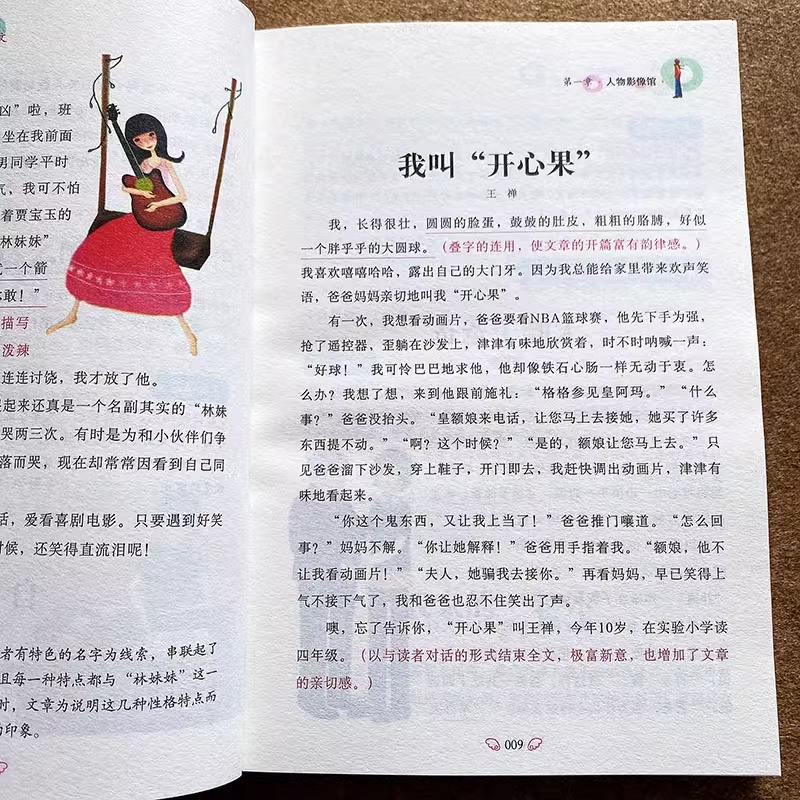 凶”啦，班
坐在我前面
男同学平时
气，我可不怕
着贾宝玉的
“林妹妹”
一个箭
敢！”
描写
泼辣
连连讨饶，我才放了他。
起来还真是一个名副其实的“林妹
哭两三次。有时是为和小伙伴们争
落而哭，现在却常常因看到自己同
话，爱看喜剧电影。只要遇到好笑
时候，还笑得直流泪呢！
者有特色的名字为线索，串联起了
且每一种特点都与“林妹妹”这一
时，文章为说明这几种性格特点而
印象。
第一章·人物影像馆
我叫“开心果”
王 禅
我，长得很壮，圆圆的脸蛋，鼓鼓的肚皮，粗粗的胳膊，好似
一个胖乎乎的大圆球。（叠字的连用，使文章的开篇富有韵律感。）
我喜欢嘻嘻哈哈，露出自己的大门牙。因为我总能给家里带来欢声笑
语，爸爸妈妈亲切地叫我“开心果”。
有一次，我想看动画片，爸爸要看NBA篮球赛，他先下手为强，
抢了遥控器，歪躺在沙发上，津津有味地欣赏着，时不时呐喊一声：
“好球！”我可怜巴巴地求他，他却像铁石心肠一样无动于衷。怎
么办？我想了想，来到他跟前施礼：“格格参见皇阿玛。”“什么
事？”爸爸没抬头。“皇额娘来电话，让您马上去接她，她买了许多
东西提不动。”“啊？这个时候？”“是的，额娘让您马上去。”只
见爸爸溜下沙发，穿上鞋子，开门即去，我赶快调出动画片，津津有
味地看起来。
“你这个鬼东西，又让我上当了！”爸爸推门嚷道。“怎么回
事？”妈妈不解。“你让她解释！”爸爸用手指着我。“额娘，他不
让我看动画片！”“夫人，她骗我去接你。”再看妈妈，早已笑得上
气不接下气了，我和爸爸也忍不住笑出了声。
噢，忘了告诉你，“开心果”叫王禅，今年10岁，在实验小学读
四年级。（以与读者对话的形式结束全文，极富新意，也增加了文章
的亲切感。）
009